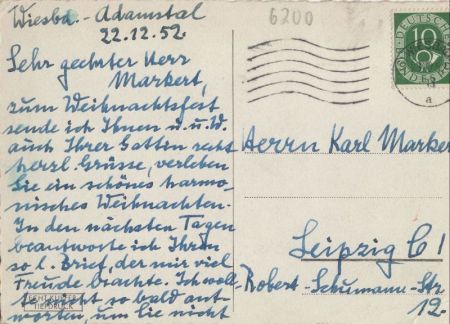 Wiesba.-Adamstal
22.12.52.
Sehr geehrter Herr
Markert,
zum Weihnachtsfest
sende ich Ihnen u. u. W.
auch Ihrer Gattin recht
herzl. Grüsse, verleben
Sie ein schönes harmo-
nisches Weihnachten.
In den nächsten Tagen
beantworte ich Ihren
so l. Brief, der mir viel
Freude brachte. Ich woll
te nicht so bald ant-
worten, um Sie nicht
6200
DEUTSCHE
10
Herrn Karl Marker
Leipzig C 1
Robert-Schumann-Str
12.